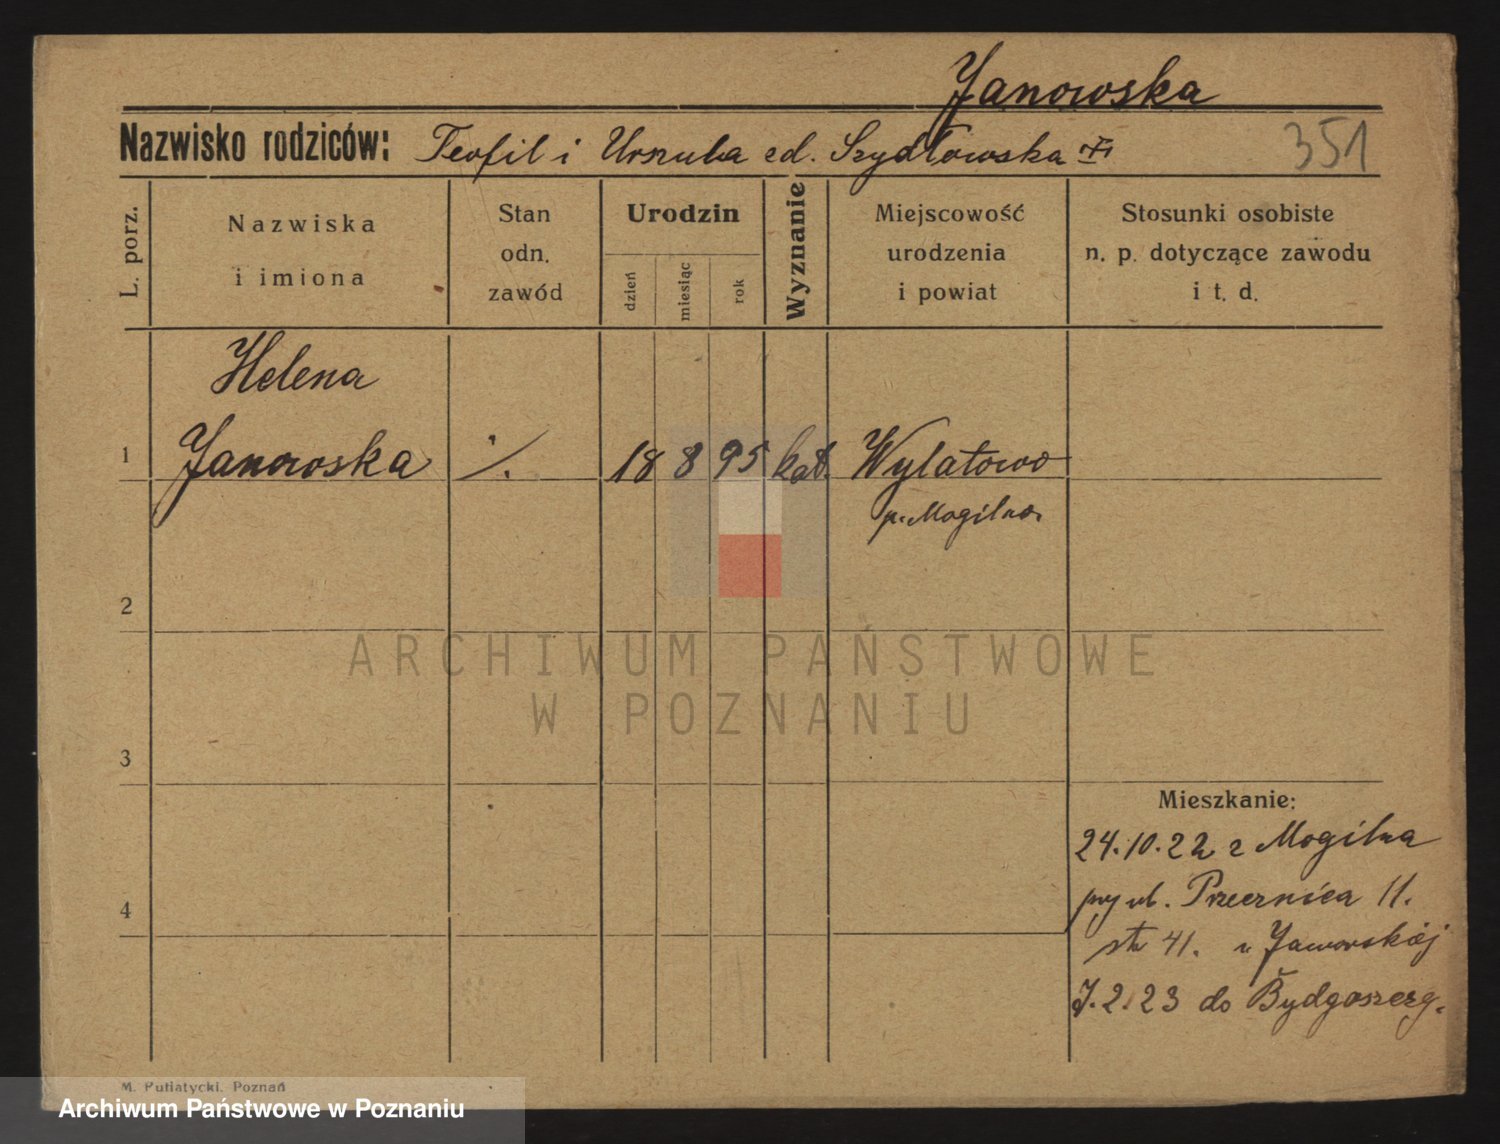 Janowska
Nazwisko rodziców: Teofil i Urszula zd. Szydłowska
351
L. porz.
Nazwiska
i imiona
Stan
odn.
zawód
Urodzin
dzień
miesiąc
rok
Wyznanie
Miejscowość
urodzenia
i powiat
Stosunki osobiste
n. p. dotyczące zawodu
i t. d.
Helena
1 Janowska ./. 18 8 95 kat. Wylatowo
p. Mogilno.
2
ARCHIWUM PAŃSTWOWE
W POZNANIU
3
Mieszkanie:
24.10.22 z Mogilna
przy ul. Przecznica 11.
4
str 41. u Jaworskiej
7.2.23 do Bydgoszczy.
M. Putiatycki, Poznań
Archiwum Państwowe w Poznaniu